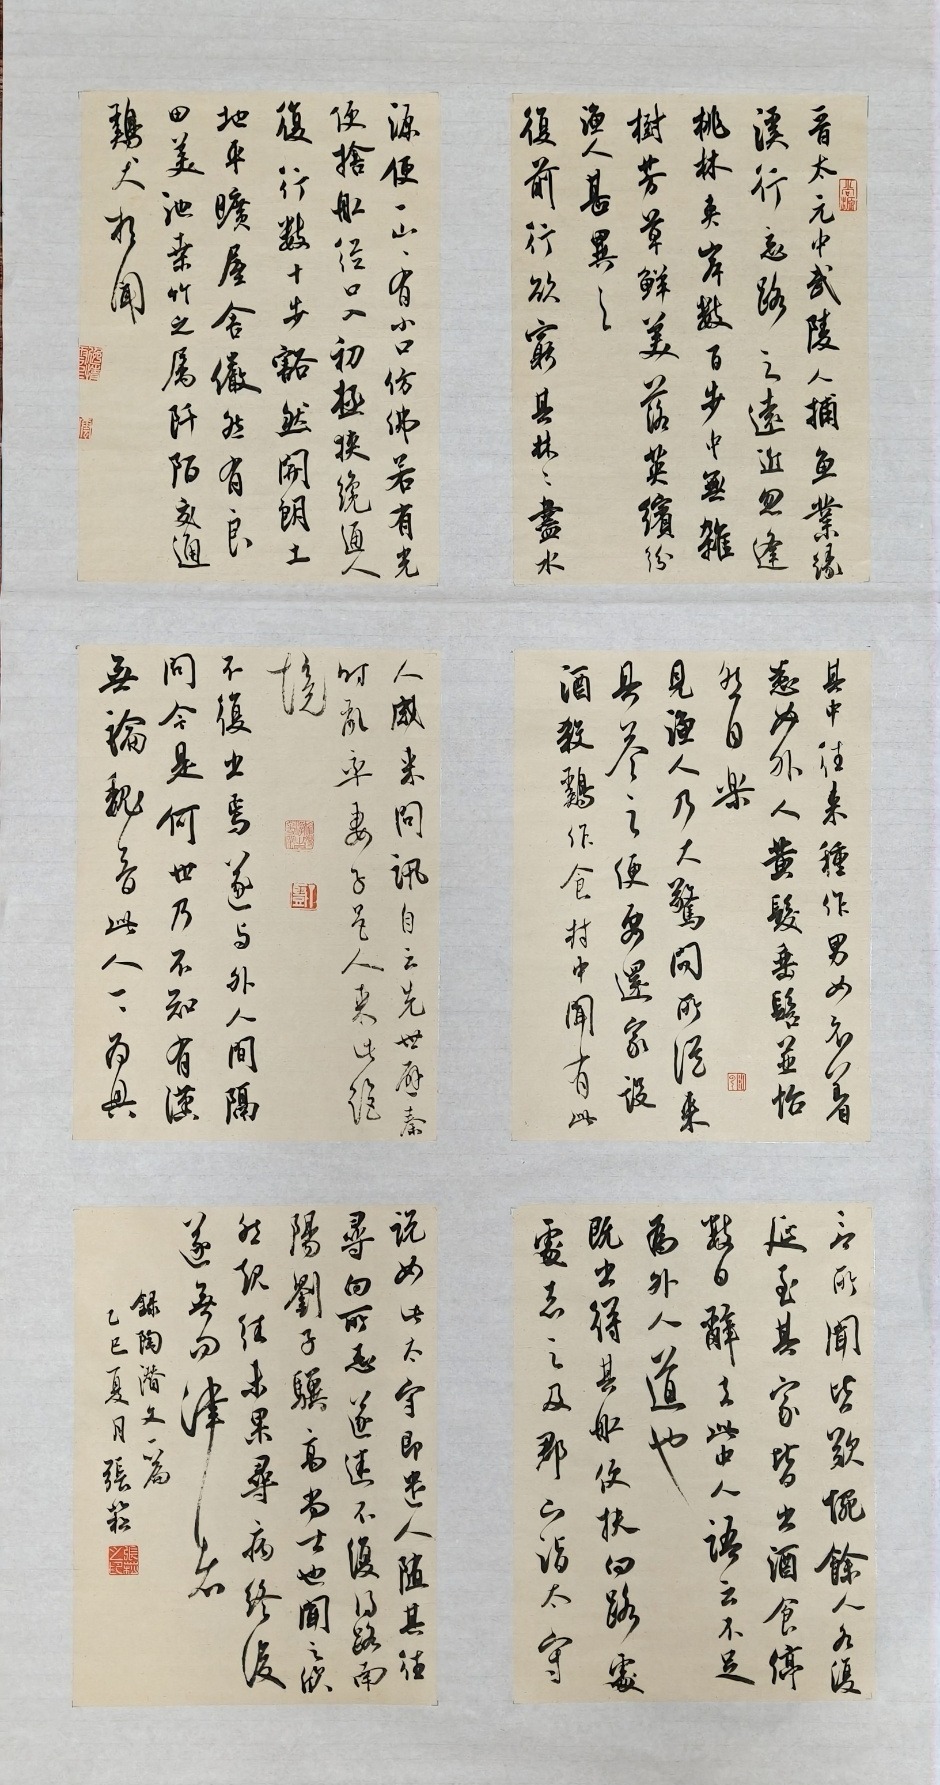 晋太元中武陵人捕魚業緣
溪行忘路之遠近忽逢
桃林夹岸数百步中無雜
樹芳草鮮美落英繽紛
漁人甚異之
復前行欲窮其林〻盡水
源便一山〻有小口仿佛若有光
便捨船從口入初極狹纔通人
復行数十步豁然開朗土
地平曠屋舍儼然有良
田美池桑竹之属阡陌交通
鷄犬相聞
其中往来種作男女衣著
悉如外人黄髮垂髫並怡
然自樂
見漁人乃大驚問所從来
具答之便要還家設
酒殺鷄作食村中聞有此
人咸来問訊自云先世避秦
時亂率妻子邑人来此絕
境
不復出焉遂与外人間隔
問今是何世乃不知有漢
無論魏晋此人一一為具
言所聞皆歎惋餘人各復
延至其家皆出酒食停
数日辭去此中人語云不足
為外人道也
既出得其船便扶向路處
處志之及郡下詣太守
說如此太守即遣人隨其往
尋向所志遂迷不復得路南
陽劉子驥高尚士也聞之欣
然規往未果尋病終後
遂無問津者
録陶潛文一篇
乙巳夏月張菘